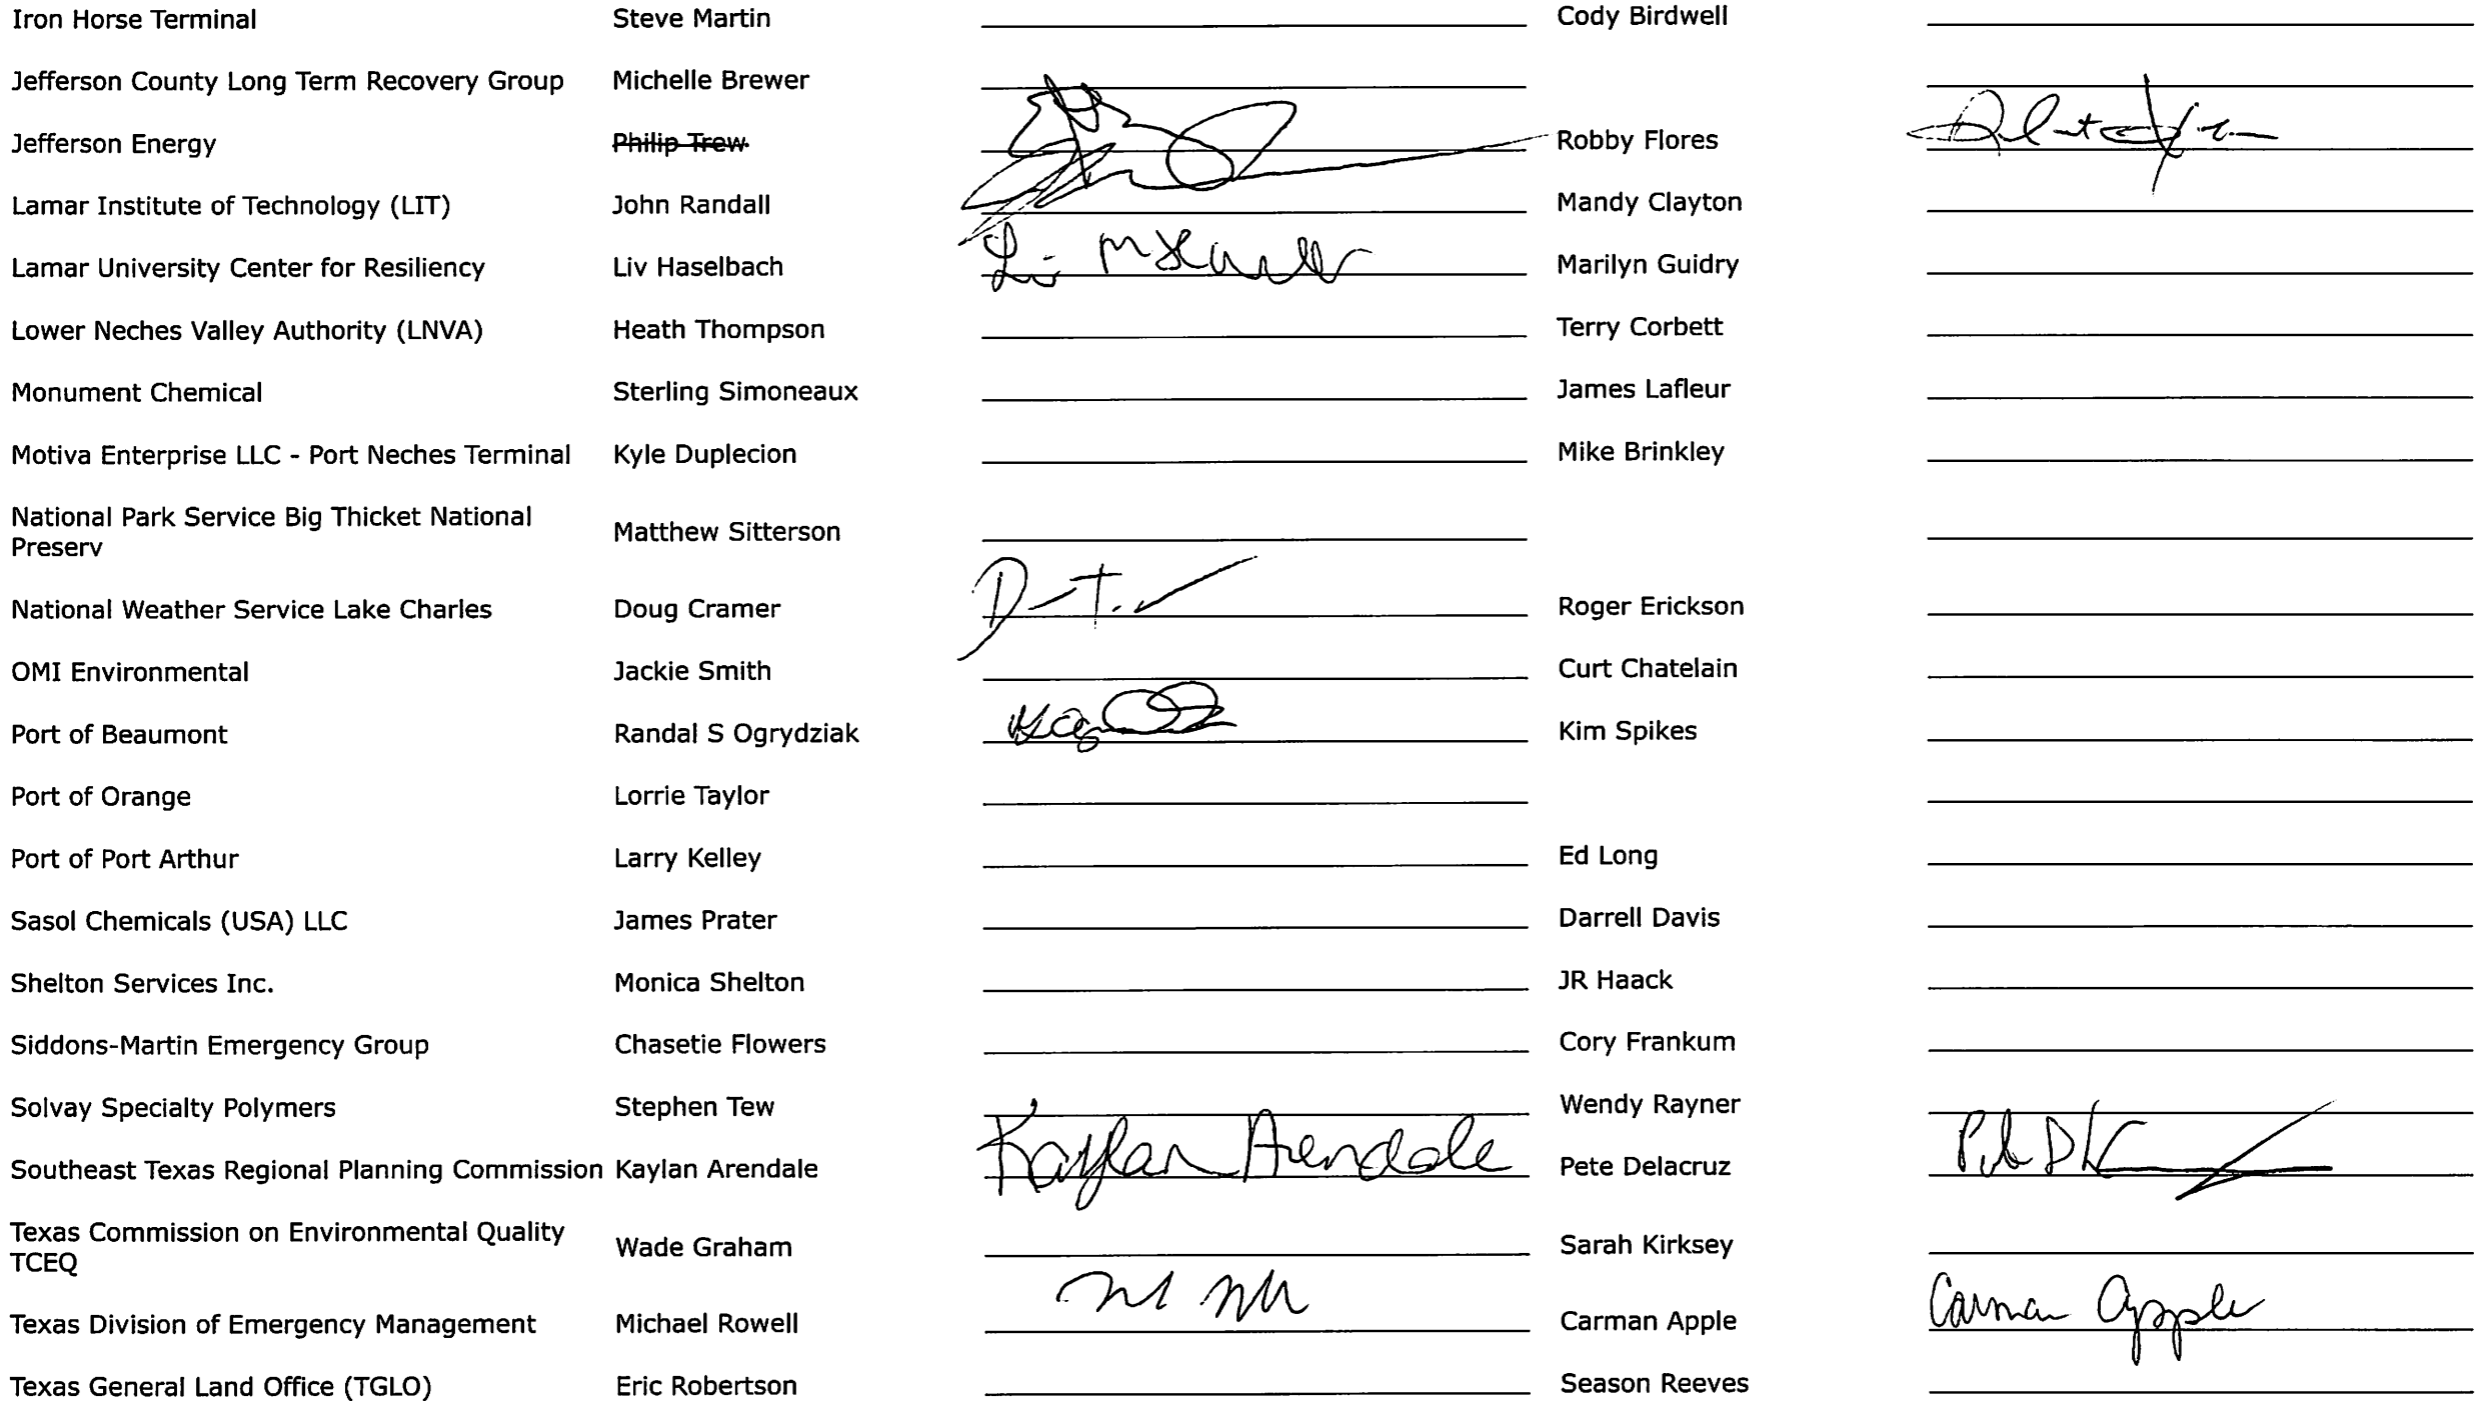 Iron Horse Terminal Steve Martin Cody Birdwell
Jefferson County Long Term Recovery Group Michelle Brewer
Jefferson Energy Philip Trew Robby Flores
Lamar Institute of Technology (LIT) John Randall Mandy Clayton
Lamar University Center for Resiliency Liv Haselbach Liv Marilyn Guidry
Lower Neches Valley Authority (LNVA) Heath Thompson Terry Corbett
Monument Chemical Sterling Simoneaux James Lafleur
Motiva Enterprise LLC - Port Neches Terminal Kyle Duplecion Mike Brinkley
National Park Service Big Thicket National
Preserv Matthew Sitterson
National Weather Service Lake Charles Doug Cramer Roger Erickson
OMI Environmental Jackie Smith Curt Chatelain
Port of Beaumont Randal S Ogrydziak Kim Spikes
Port of Orange Lorrie Taylor
Port of Port Arthur Larry Kelley Ed Long
Sasol Chemicals (USA) LLC James Prater Darrell Davis
Shelton Services Inc. Monica Shelton JR Haack
Siddons-Martin Emergency Group Chasetie Flowers Cory Frankum
Solvay Specialty Polymers Stephen Tew Wendy Rayner
Southeast Texas Regional Planning Commission Kaylan Arendale Kaylan Arendale Pete Delacruz
Texas Commission on Environmental Quality
TCEQ Wade Graham Sarah Kirksey
Texas Division of Emergency Management Michael Rowell Carman Apple Carman Apple
Texas General Land Office (TGLO) Eric Robertson Season Reeves